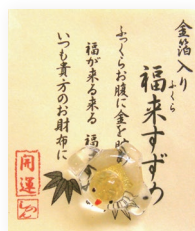 金箔入り
ふくら
福来すずめ
ふっくらお腹に金を
福が来る来る 福
いつも貴方のお財布に
開運